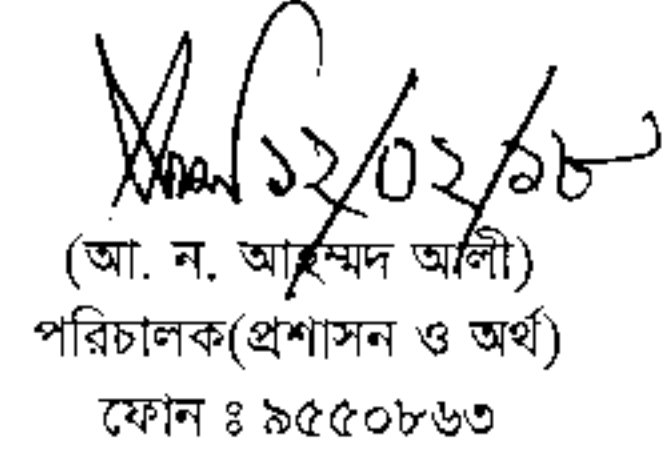 ১২/০২/১৮
(আ. ন. আহম্মদ আলী)
পরিচালক(প্রশাসন ও অর্থ)
ফোন ঃ ৯৫৫০৮৬৩